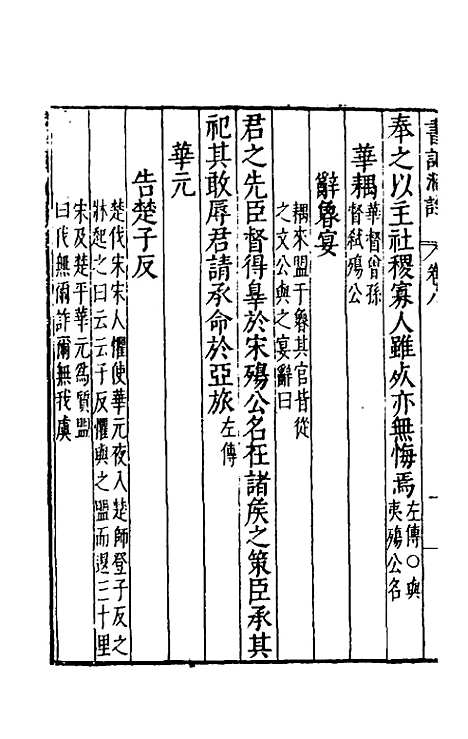 卷八
奉之以主社稷寡人雖死亦無悔焉左傳○與
夷殤公名
華耦華督曾孫
督弒殤公
辭魯宴
耦來盟于魯其官皆從
之文公與之宴辭曰
君之先臣督得辠於宋殤公名在諸侯之策臣承其
祀其敢辱君請承命於亞旅左傳
華元
告楚子反
楚伐宋宋人懼使華元夜入楚師登子反之
牀起之曰云云子反懼與之盟而退三十里
宋及楚平華元為質盟
曰我無爾詐爾無我虞